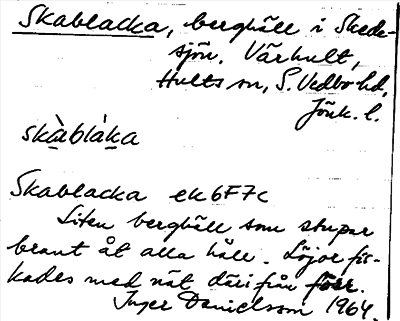 Skablacka, berghäll i Skede-
sjön. Värhult,
Hults sn, S. Vedbo hd,
Jönk. l.
skàblàka
Skablacka ek6F7c
Liten berghäll som stupar
brant åt alla håll. Löjor fis-
kades med nät därifrån förr.
Inger Danielsson 1964.